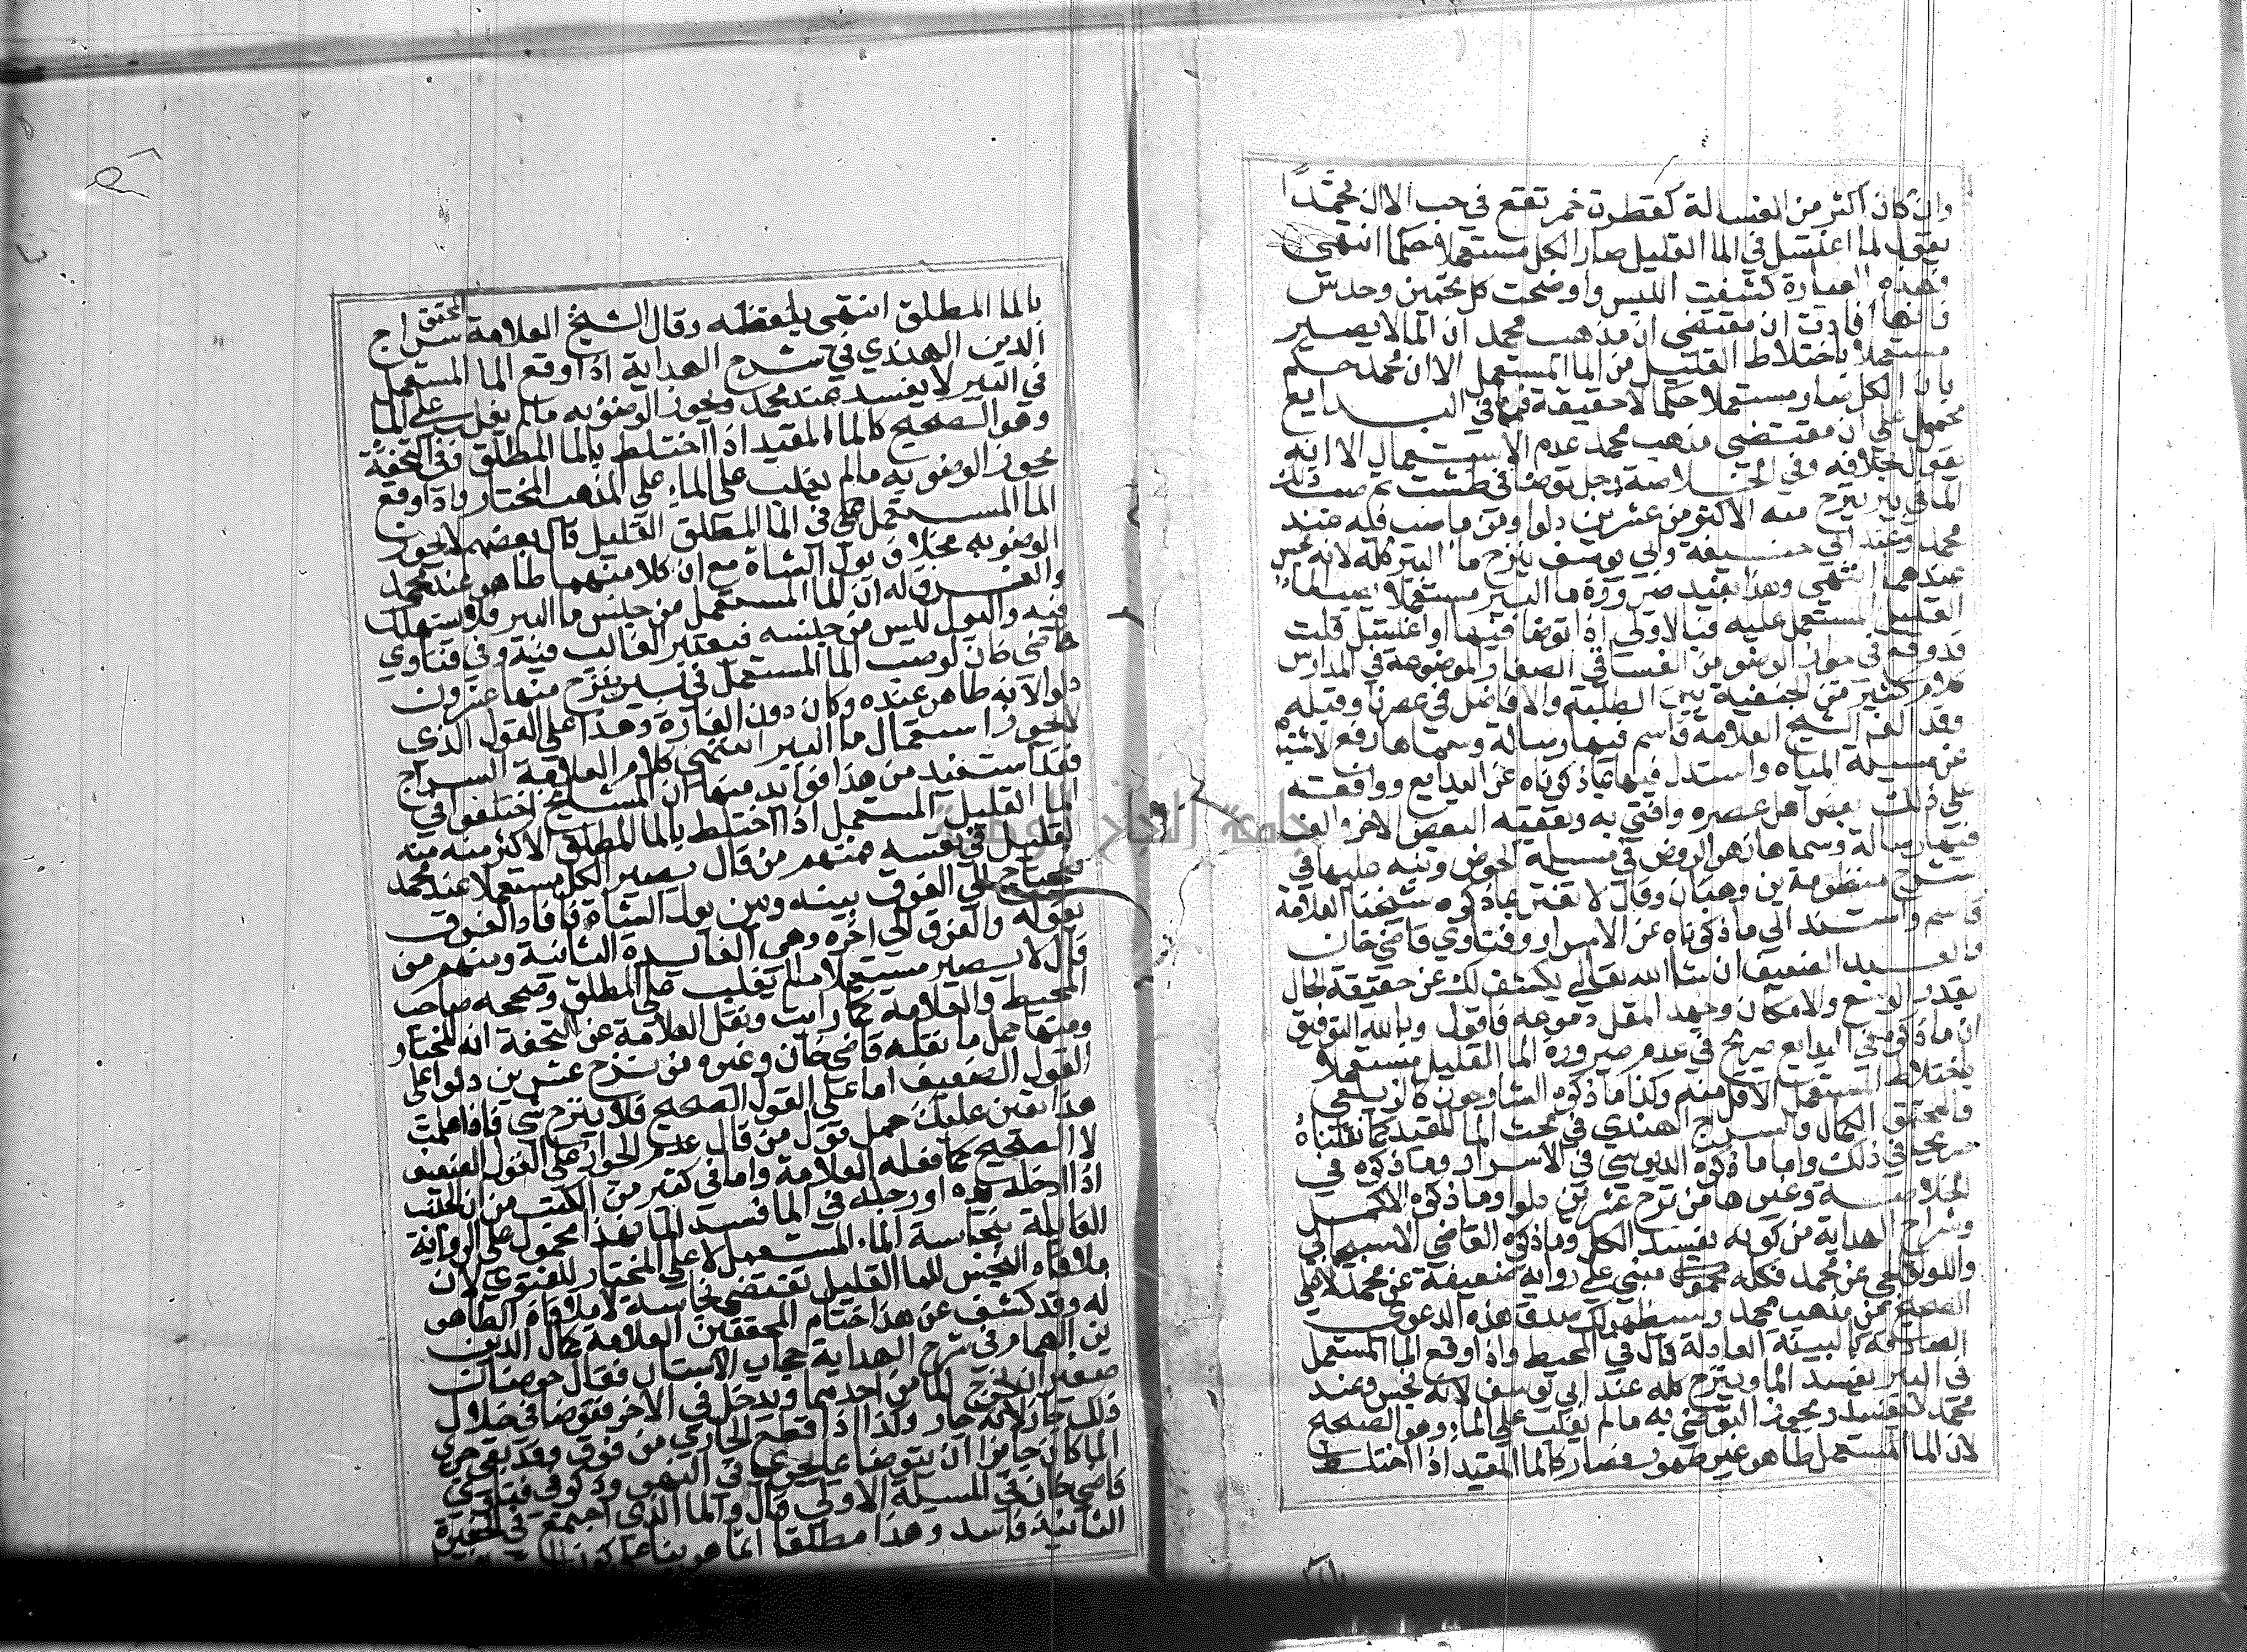 وان كان اكثر من الغسالة كقطرة خمر تقع في حب الا ان محمدًا
يقول لما اغتسل في الما القليل صار الكل مستعملا حكما انتهى
فهذه العبارة كشفت اللبس واوضحت كل تخمين وحدس
فانها افادت ان مقتضى ان مذهب محمد ان الما لا يصير
مستعملا باختلاط القليل من الما المستعمل الا ان محمد حكم
بان الكل صار مستعملا حكما لا حقيقة فما في البدايع
محمول على ان مقتضى مذهب محمد عدم الاستعمال الا انه
يقول بخلافه وفي الخلاصة رجل توضا في طشت ثم صب ذلك
الما في بير ينزح منه الاكثر من عشرين دلوا ومن ما صب فيه عند
محمد وعند ابي حنيفة وابي يوسف ينزح ما البير كله لانه نجس
عندهما انتهى وهذا يفيد صيرورة ما البير مستعملا
القليل المستعمل عليه فبالاولى اذا توضا فيها او اغتسل قلت
قد وقع في جواز الوضو من الفساقي الصغار الموضوعة في المدارس
كلام كثير من الحنفية بين الطلبة والافاضل في عصرنا وقبله
وقد الف الشيخ العلامة قاسم فيها رسالة وسماها رفع الاشتباه
عن مسيلة المياه واستدل فيها بما ذكرناه عن البدايع ووافقه
على ذلك بعض اهل عصره وافتى به وتعقبه البعض الاخر والف
فيها رسالة وسماها زهر الروض في مسيلة الحوض ونبه عليها في
شرح منظومة بن وهبان وقال لا تغتر بما ذكره شيخنا العلامة
قاسم واستند الى ما ذكرناه عن الاسرار وفتاوي قاضي خان
والعبد الضعيف ان شا الله تعالى يكشف لك عن حقيقة الحال
بقدر الوسع والامكان وجهد المقل دموعه فاقول وبالله التوفيق
ان ما ذكره في البدايع صريح في عدم صيرورة الما القليل مستعملا
باختلاط المستعمل الاقل منه وكذا ما ذكره الشارحون كالزيلعي
والمحقق الكمال والسراج الهندي في بحث الما المقيد كما نقلناه
صريح في ذلك واما ما ذكره الدبوسي في الاسرار وما ذكره في
الخلاصة وغيرها من نزح عشرين دلوا وما ذكره الاكمل
وشراح الهداية من كونه يفسد الكل وما ذكره القاضي الاسبيجابي
والولوالجي عن محمد فكله مبني على رواية ضعيفة عن محمد لا على
الصحيح من مذهب محمد وسيظهر لك صدق هذه الدعوى
الصادقة بالبينة العادلة قال في المحيط واذا وقع الما المستعمل
في البير يفسد الما وينزح كله عند ابي يوسف لانه نجس وعند
محمد لا يفسد ويجوز التوضي به ما لم يغلب على الماء وهو الصحيح
لان الما المستعمل طاهر غير طهور فصار كالما المقيد اذا اختلط
بالما المطلق انتهى بلفظه وقال الشيخ العلامة المحقق سراج
الدين الهندي في شرح الهداية اذا وقع الما المستعمل
في البير لا يفسد عند محمد ويجوز الوضو به ما لم يغلب على الما
وهو الصحيح كالماء المقيد اذا اختلط بالما المطلق وفي التحفة
يجوز الوضو به ما لم يغلب على الماء على المذهب المختار واذا وقع
الما المستعمل في الما المطلق القليل قال بعضهم لا يجوز
الوضو به بخلاف بول الشاة مع ان كلا منهما طاهر عند محمد
والفرق له ان الما المستعمل من جنس ما البير فلا يستهلك
فيه والبول ليس من جنسه فيعتبر الغالب فيه وفي فتاوي
قاضي خان لو صب الما المستعمل في بير ينزح منها عشرون
دلوا لانه طاهر عنده وكان دون الفارة وهذا على القول الذي
لا يجوز استعمال ما البير انتهى كلام العلامة السراج
فقد استفيد من هذا فوايد منها ان المشايخ اختلفوا في
الما القليل المستعمل اذا اختلط بالما المطلق الاكثر منه
القليل في نفسه فمنهم من قال يصير الكل مستعملا عند محمد
فيحتاج الى الفرق بينه وبين بول الشاة فافاد الفرق
بقوله والفرق الى اخره وهي الفايدة الثانية ومنهم من
قال لا يصير مستعملا ما لم يغلب على المطلق وصححه صاحب
المحيط والعلامة كما رايت ونقل العلامة عن التحفة انه المختار
ومنها حمل ما نقله قاضي خان وغيره من نزح عشرين دلوا على
القول الضعيف اما على القول الصحيح فلا ينزح شي فاذا علمت
هذا تعين عليك حمل قول من قال عدم الجواز على القول الضعيف
لا الصحيح كما فعله العلامة واما في كثير من الكتب من ان الجنب
اذا ادخل يده او رجله في الما فسد الما فهذا محمول على الرواية
القايلة بنجاسة الماء المستعمل لا على المختار للفتوى لان
ملاقاة النجس للما القليل تقتضي نجاسته لا ملاقاة الطاهر
له وقد كشف عن هذا ختام المحققين العلامة كمال الدين
بن الهمام في شرح الهداية حجاب الاستار فقال حوضان
صغيران يخرج الما من احدهما ويدخل في الاخر فتوضا في خلال
ذلك جاز لانه جار وكذا اذا قطع الجاري من فوق وقد بقي جري
الما كان جايزا ان يتوضا بما يجري في النهر وذكر في فتاوي
قاضي خان في المسيلة الاولى قال والما الذي اجتمع في الحفيرة
الثانية فاسد وهذا مطلقا انما هو بنا على كون
جامعة النجاح الوطنية